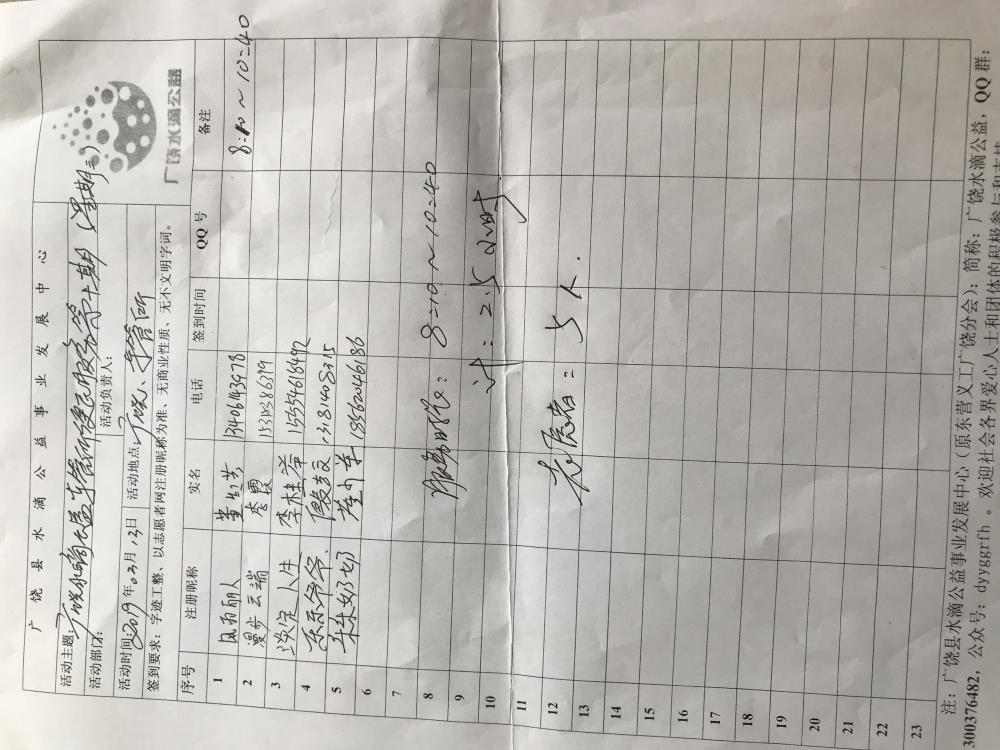 广饶县水滴公益事业发展中心
广饶水滴公益
活动主题:广饶水滴公益车管所便民服务第十期(星期三)
活动部门: 活动负责人:
活动时间:2019年03月13日 活动地点:广饶、车管所
签到要求:字迹工整、以志愿者网注册昵称为准、无商业性质、无不文明字词。
序号 注册昵称 实名 电话 签到时间 QQ号 备注
1 风雨丽人 13406143978 8:10~10:40
2 漫步云端 李霞
3 淡定人生 李 15554618492
4 东东爷爷 13181408315
5 东东奶奶 18562046186
6
7
8 服务时间: 8:10~10:40
9
10 计:2.5小时
11
12 志愿者:5人.
13
14
15
16
17
18
19
20
21
22
23
注:广饶县水滴公益事业发展中心(原东营义工广饶分会);简称:广饶水滴公益,QQ群:
300376482,公众号:dyyggrfh 。欢迎社会各界爱心人士和团体的积极参与和支持